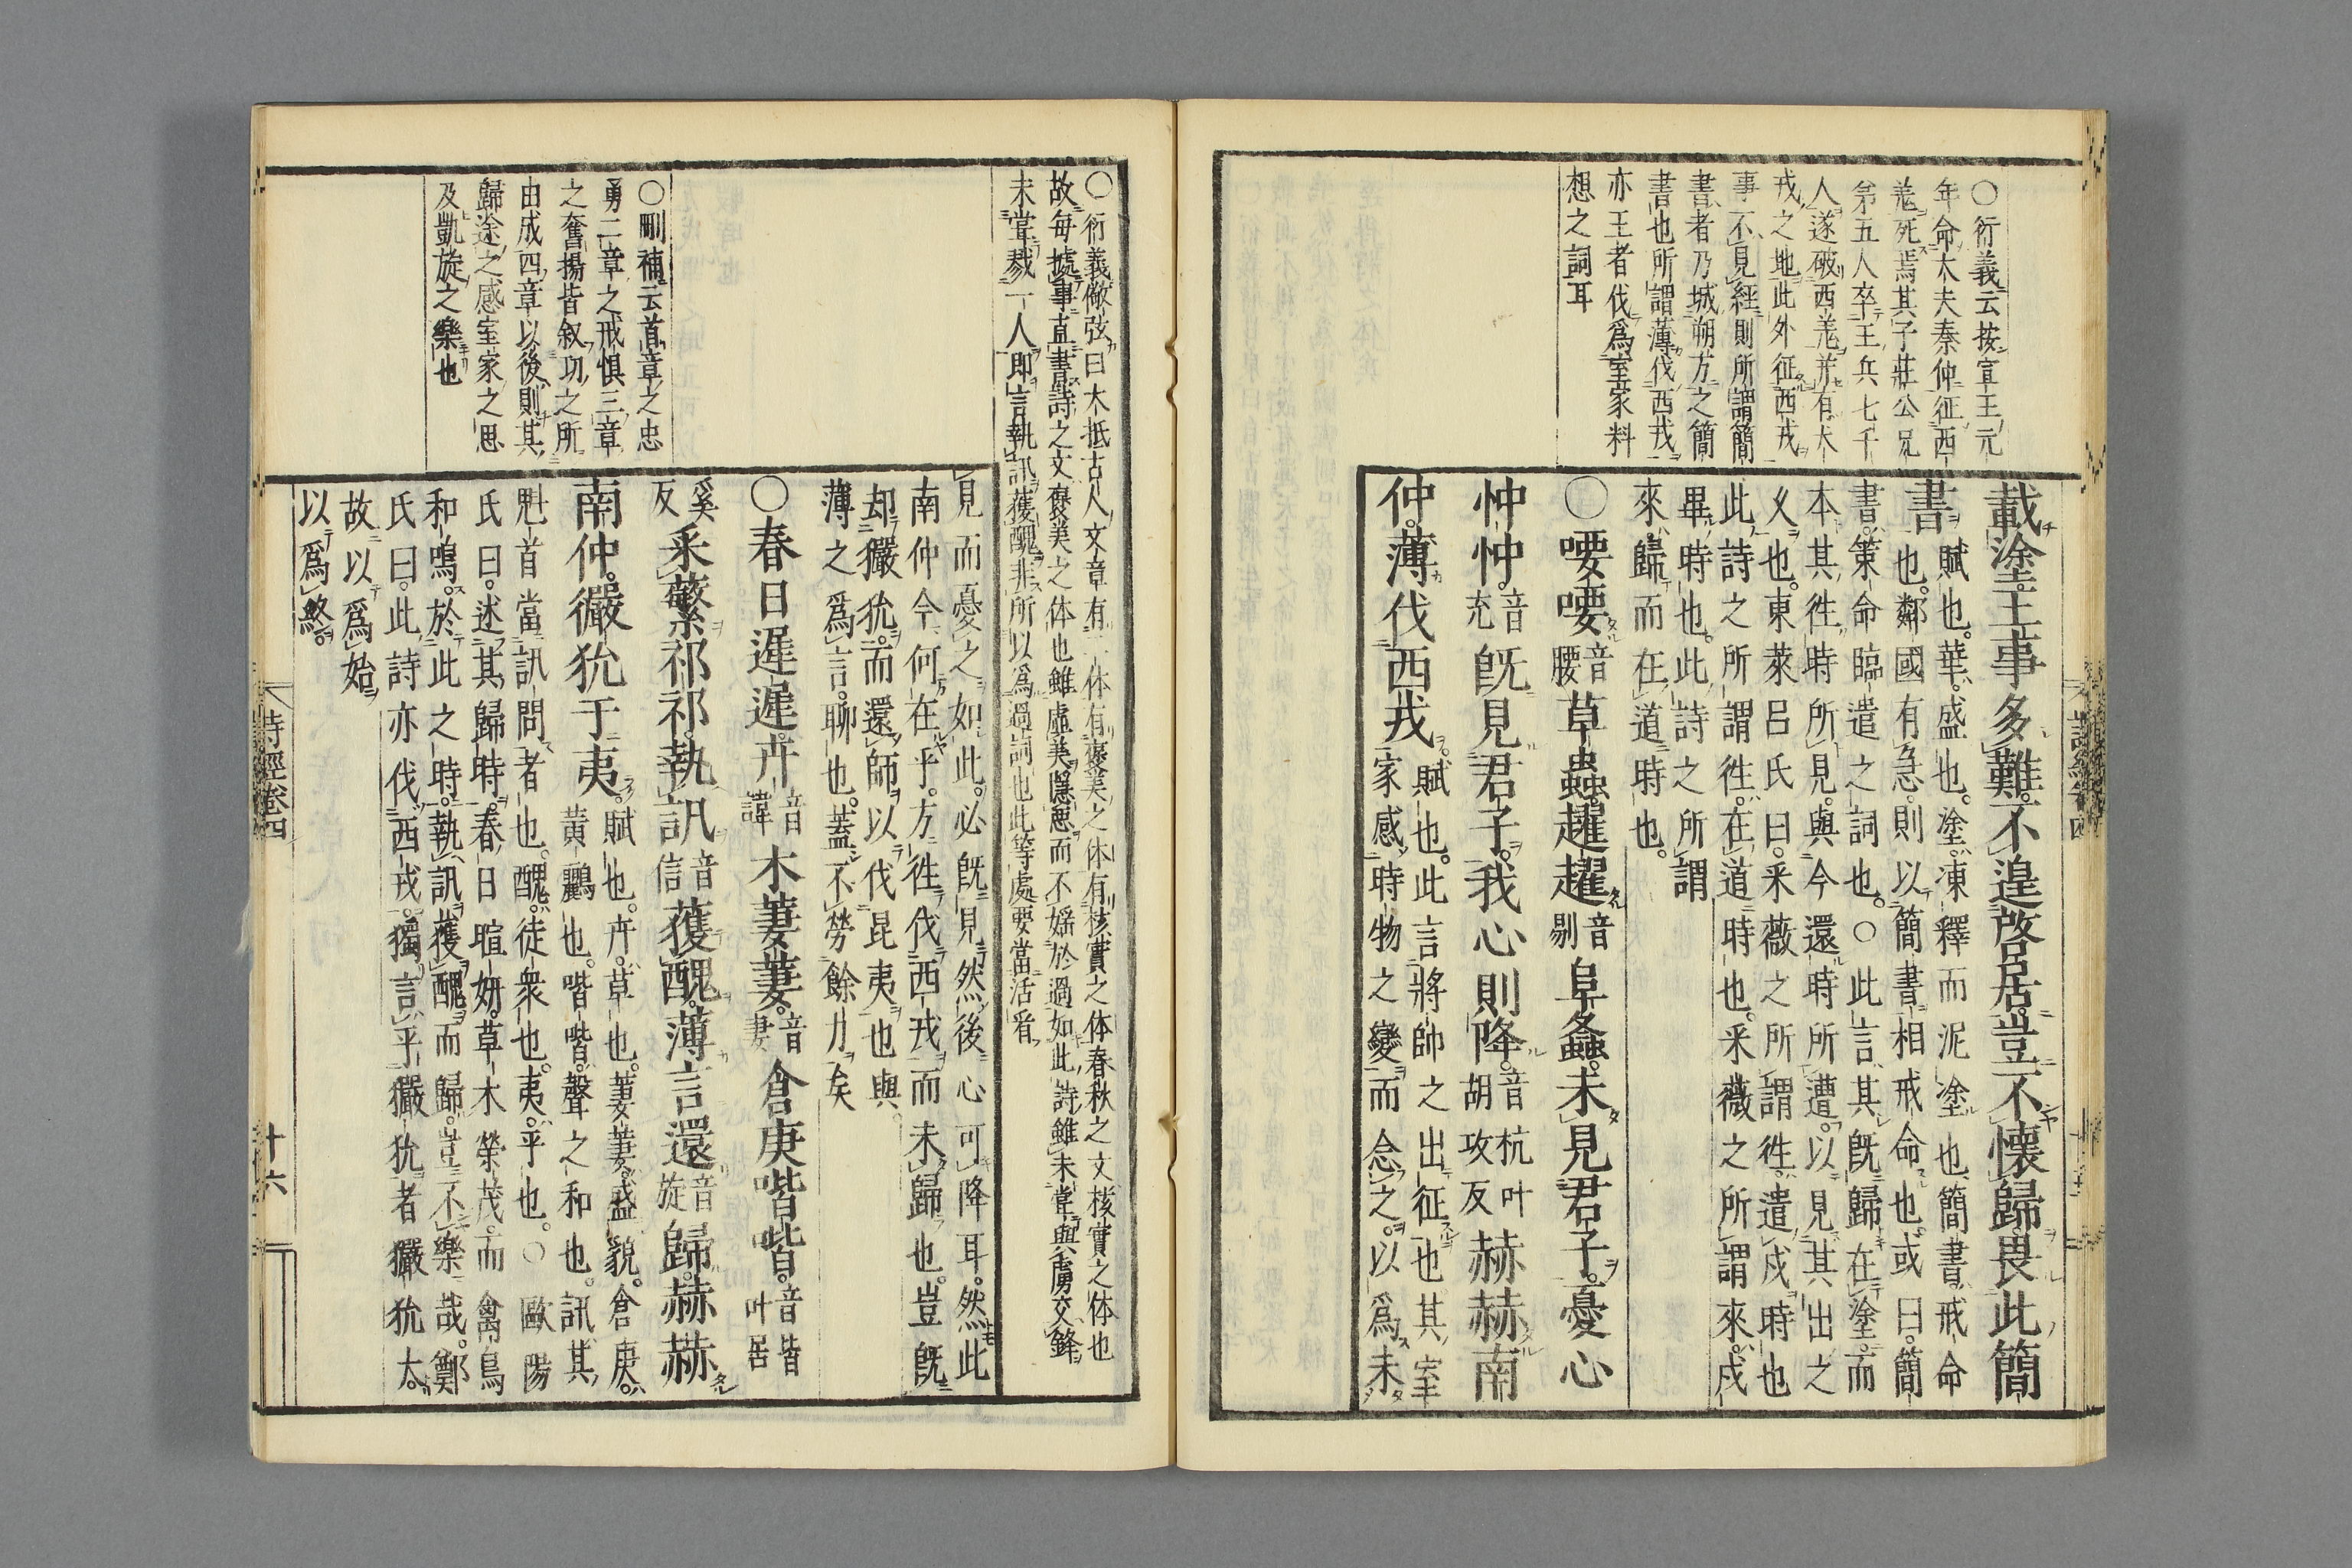 ○衍義云按宣王元
年命大夫秦仲征西
羗死焉其子莊公兄
弟五人卒王兵七千
人遂破西羗并有犬
戎之地此外征西戎
事不見經則所謂簡
書者乃城朔方之簡
書也所謂薄伐西戎
亦王者伐爲室家料
想之詞耳
載塗王事多難不遑啓居豈不懷歸畏此簡
書
賦也。華盛也。塗凍釋而泥塗也簡書戒命
也。鄰國有急則以簡書相戒命也。或曰。簡
書。策命臨遣之詞也。○此言其旣歸在塗而
本其徃時所見與今還時所遭。以見其出之
乆也。東萊呂氏曰采薇之所謂徃遣戍時也
此詩之所謂徃在道時也。采薇之所謂來戍
畢時也。此詩之所謂
來歸而在道時也。
○喓喓音腰草蟲趯趯音剔阜螽未見君子憂心
忡忡音充旣見君子我心則降音杭叶胡攻反赫赫南
仲薄伐西戎
賦也。此言將帥之出征也其室
家感時物之變而念之。以爲未
○衍義儆弦曰大抵古人文章有一体有褒美之体有核實之体春秋之文核實之体也
故每㨿事直書詩之文褒美之体也雖虛美隱惡而不婬於過如此詩雖未甞與虜交鋒
未甞戮一人即言執訊獲醜非所以爲過詞也此等處要當活看
○刪補云首章之忠
勇二章之戒惧三章
之奮揚皆叙功之所
由成四章以後則其
歸途之感室家之思
及凱旋之樂也
見而憂之如此。必旣見然後心可降耳。然此
南仲今何在乎。方徃伐西戎而未歸也。豈旣
却玁狁。而還師以伐昆夷也與。
薄之爲言。聊也。蓋不勞餘力矣
○春日遲遲卉音諱木萋萋音妻倉庚喈喈音皆叶居
奚反采蘩祁祁執訊音信獲醜薄言還音旋歸赫赫
南仲玁狁于夷
賦也。卉草也。萋萋盛貌。倉庚
黃鸝也。喈喈聲之和也。訊其
魁首當訊問者也。醜徒衆也。夷平也。○歐陽
氏曰。述其歸時春日暄妍草木榮茂。而禽鳥
和鳴。於此之時。執訊獲醜而歸。豈不樂哉。鄭
氏曰。此詩亦伐西戎。獨言平玁狁者玁狁大。
故以爲始
以爲終。
詩經卷四
十六